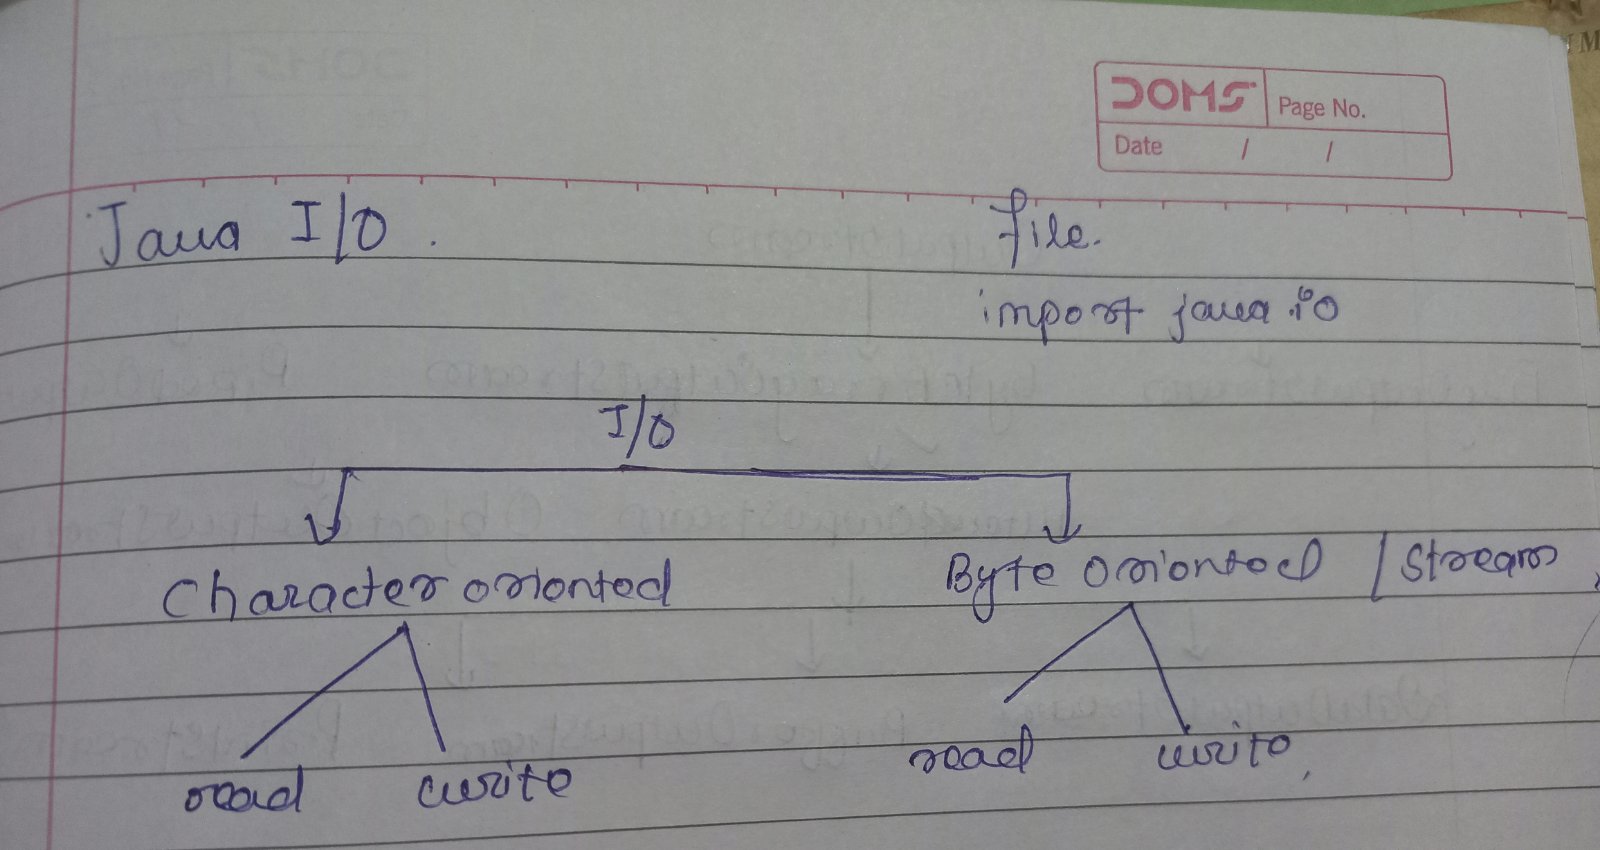 DOMS Page No.
Date / /
Java I/O. file.
import java.io
I/O
Character oriented Byte oriented / Stream
read write read write,